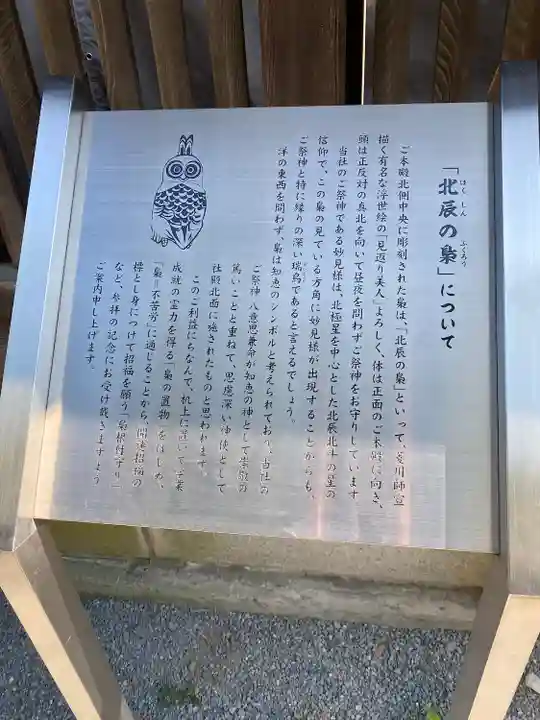 「北辰の梟」について
ほくしん ふくろう
ご本殿北側中央に彫刻された梟は、「北辰の梟」といって、菱川師宣
描く有名な浮世絵の「見返り美人」よろしく、体は正面のご本殿に向き、
頭は正反対の真北を向いて昼夜を問わずご祭神をお守りしています
当社のご祭神である妙見様は、北極星を中心とした北辰北斗の星の
信仰で、この梟の見ている方角に妙見様が出現することからも、
ご祭神と特に縁りの深い瑞鳥であると言えるでしょう。
洋の東西を問わず、梟は知恵のシンボルと考えられており、当社の
ご祭神 八意思兼命が知恵の神として崇敬の
篤いことと重ねて、思慮深い神使として
社殿北面に施されたものと思われます。
このご利益にちなんで、机上に置いて学業
成就の霊力を得る「梟の置物」をはじめ、
「梟=不苦労」に通じることから、開運招福の
標とし身につけて招福を願う「梟根付守り」
など、参拝の記念にお受け戴きますよう
ご案内申し上げます。